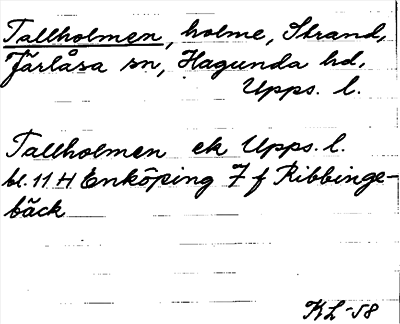 Tallholmen, holme, Strand,
Järlåsa sn, Hagunda hd,
Upps. l.
Tallholmen ek Upps. l.
bl. 11 H Enköping 7 f Ribbinge-
bäck
KL -58